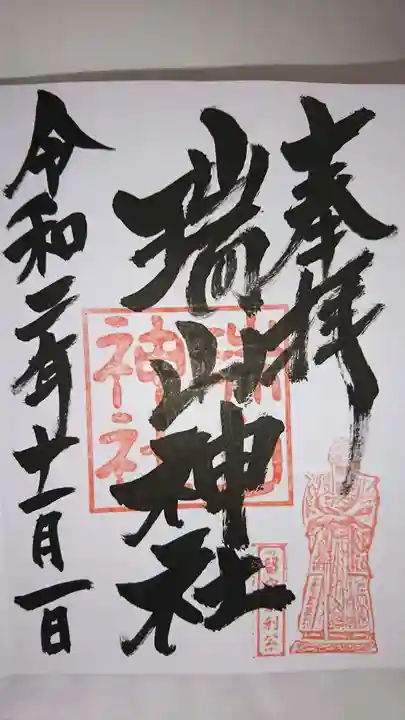 奉拝
瑞山神社
瑞山神社
令和二年十一月一日